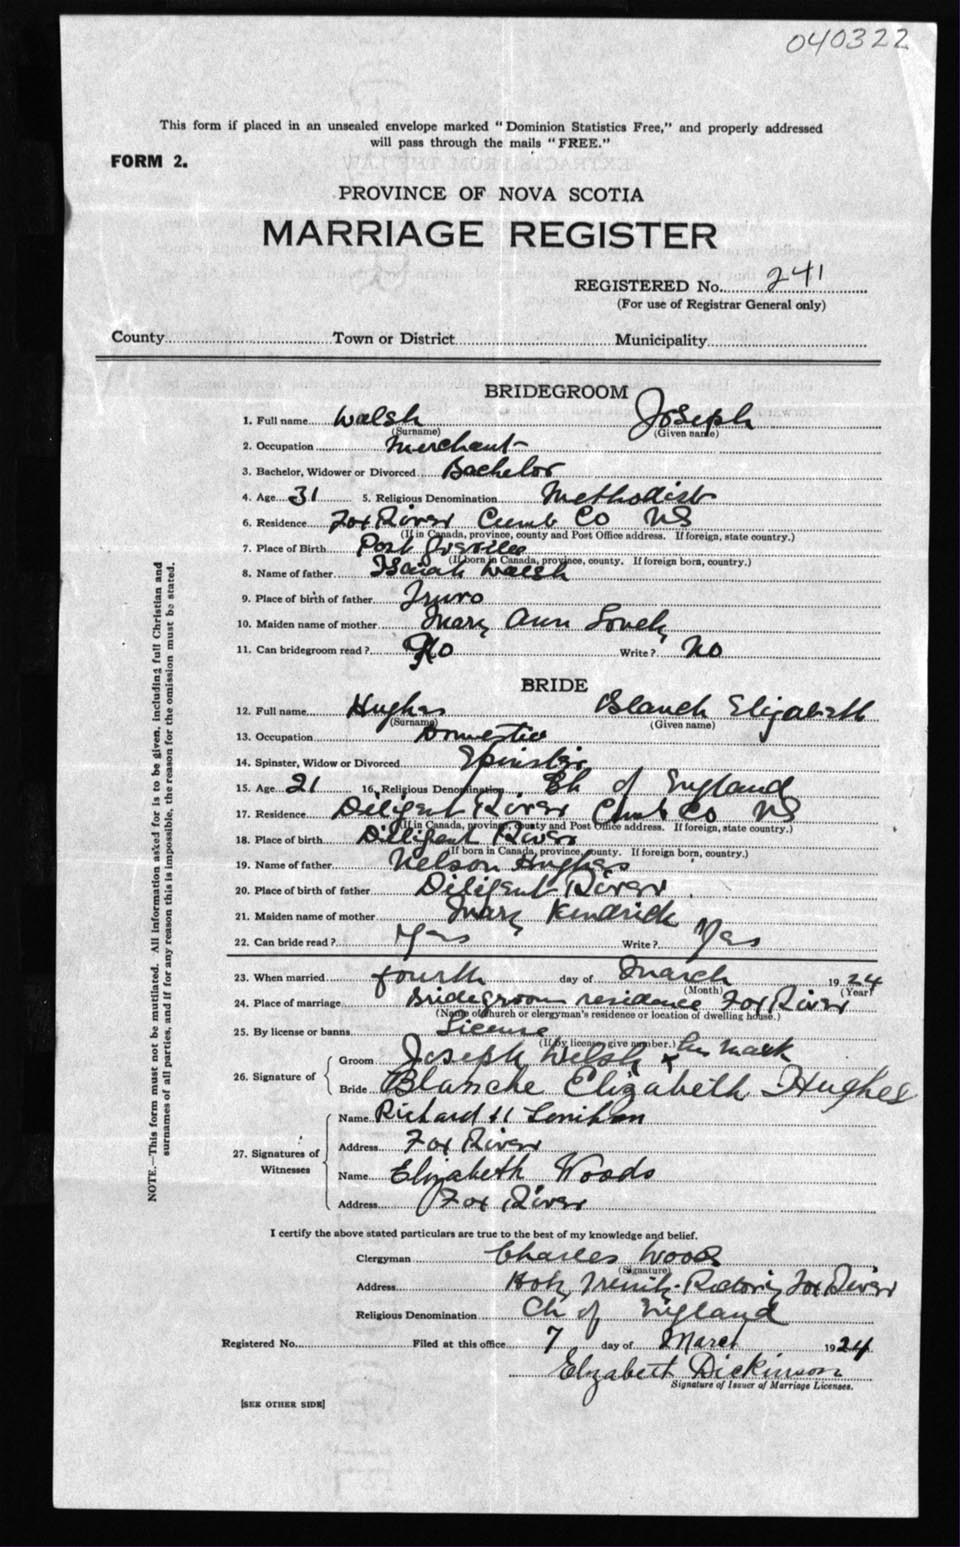 040322
This form if placed in an unsealed envelope marked "Dominion Statistics Free," and properly addressed
will pass through the mails "FREE."
FORM 2.
PROVINCE OF NOVA SCOTIA
MARRIAGE REGISTER
REGISTERED No. 241
(For use of Registrar General only)
County Town or District Municipality
BRIDEGROOM
1. Full name Walsh Joseph
(Surname) (Given name)
2. Occupation Merchant
3. Bachelor, Widower or Divorced Bachelor
4. Age 31 5. Religious Denomination Methodist
6. Residence Fox River Cumb Co NS
(If in Canada, province, county and Post Office address. If foreign, state country.)
7. Place of Birth Port Greville
(If born in Canada, province, county. If foreign born, country.)
8. Name of father Isaiah Walsh
9. Place of birth of father Truro
10. Maiden name of mother Mary Ann
11. Can bridegroom read? No Write? No
BRIDE
12. Full name Hughes Blanch Elizabeth
(Surname) (Given name)
13. Occupation Domestic
14. Spinster, Widow or Divorced Spinster
15. Age 21 16. Religious Denomination Ch of England
17. Residence Diligent River Cumb Co NS
(If in Canada, province, county and Post Office address. If foreign, state country.)
18. Place of birth Diligent River
(If born in Canada, province, county. If foreign born, country.)
19. Name of father Nelson Hughes
20. Place of birth of father Diligent River
21. Maiden name of mother Mary Kendrick
22. Can bride read? Yes Write? Yes
23. When married fourth day of March 1924
(Month) (Year)
24. Place of marriage Bridegroom residence Fox River
(Name of church or clergyman's residence or location of dwelling house.)
25. By license or banns License
(If by license, give number.)
26. Signature of
Groom Joseph Welsh x his mark
Bride Blanche Elizabeth Hughes
27. Signatures of Witnesses
Name Richard H Lenihan
Address Fox River
Name Elizabeth Woods
Address Fox River
I certify the above stated particulars are true to the best of my knowledge and belief.
Clergyman Charles Wood
(Signature)
Address Holy Trinity Rectory Fox River
Religious Denomination Ch of England
Registered No. Filed at this office 7 day of March 1924
Elizabeth Dickinson
Signature of Issuer of Marriage Licenses.
[SEE OTHER SIDE]
NOTE.—This form must not be mutilated. All information asked for is to be given, including full Christian and
surnames of all parties, and if for any reason this is impossible, the reason for the omission must be stated.